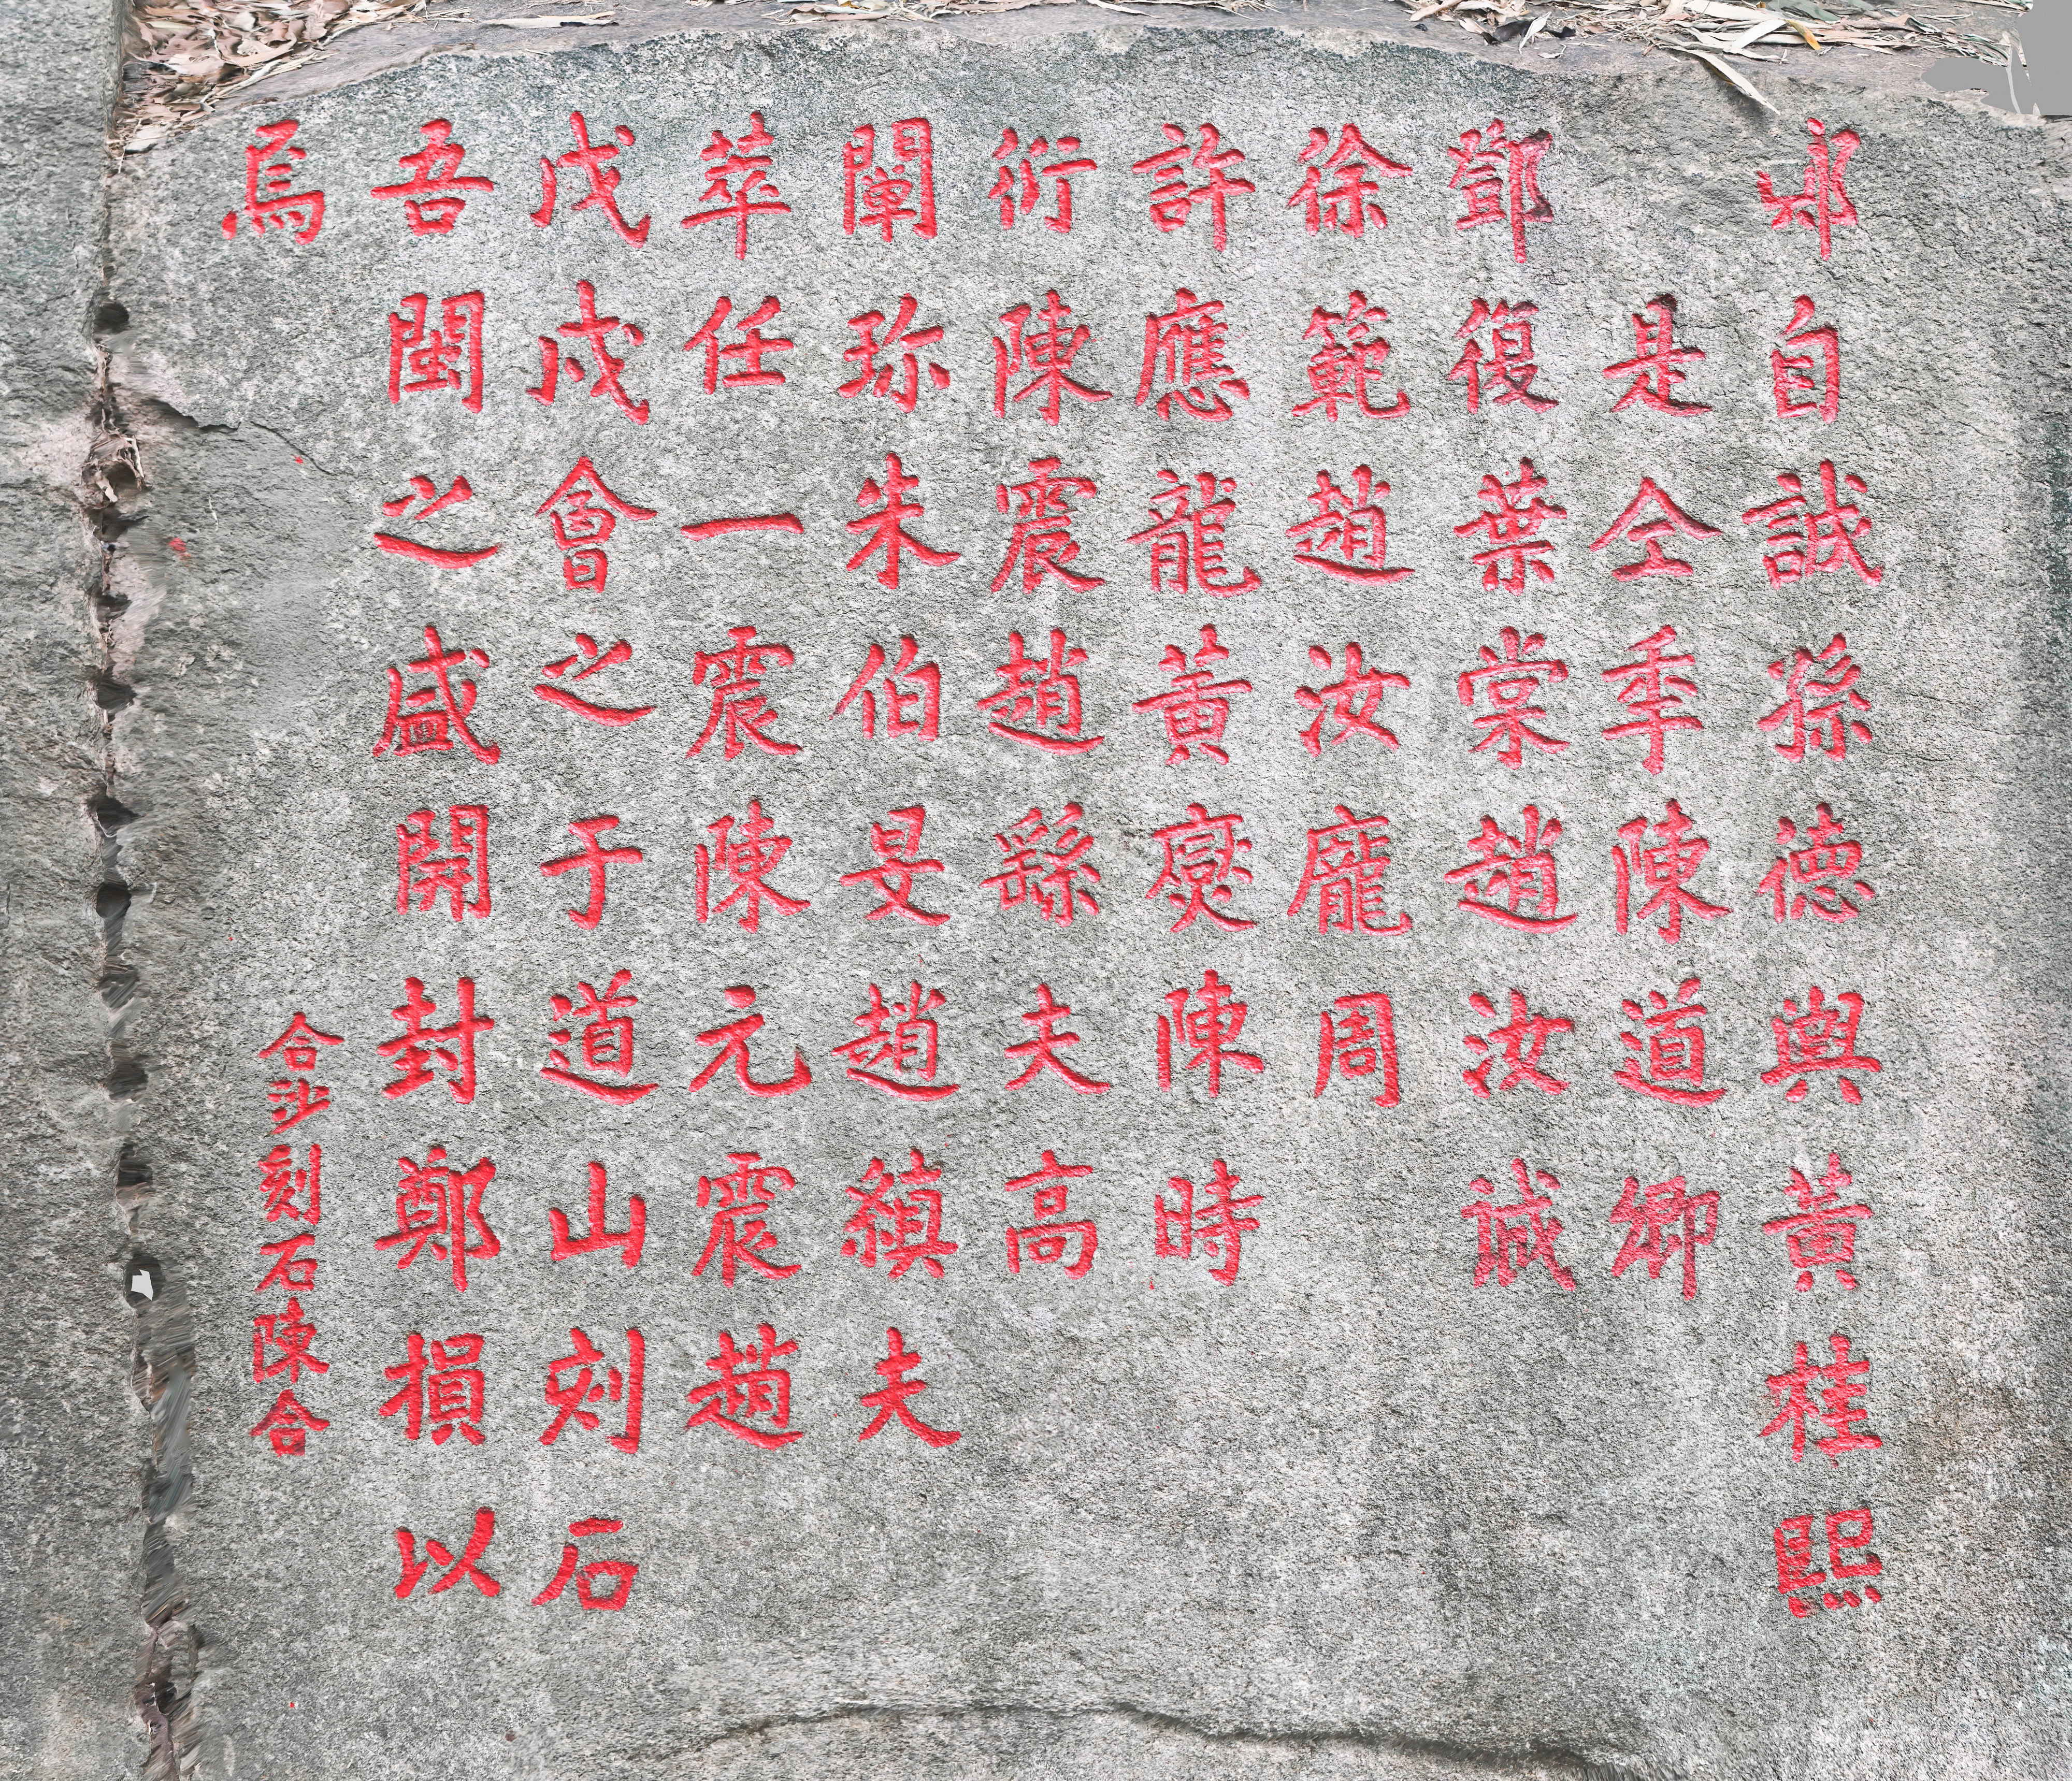 自誠孫德輿黃桂熙
是仝秊陳道卿
鄧復葉棠趙汝
徐範趙汝龐周
許應龍黃燮陳時
衍陳震趙夫高
闡珎朱伯旻趙稹夫
萃任一震陳元震趙
戊戌會之于道山刻石
吾閩之盛開封鄭損以
焉
合沙刻石陳合